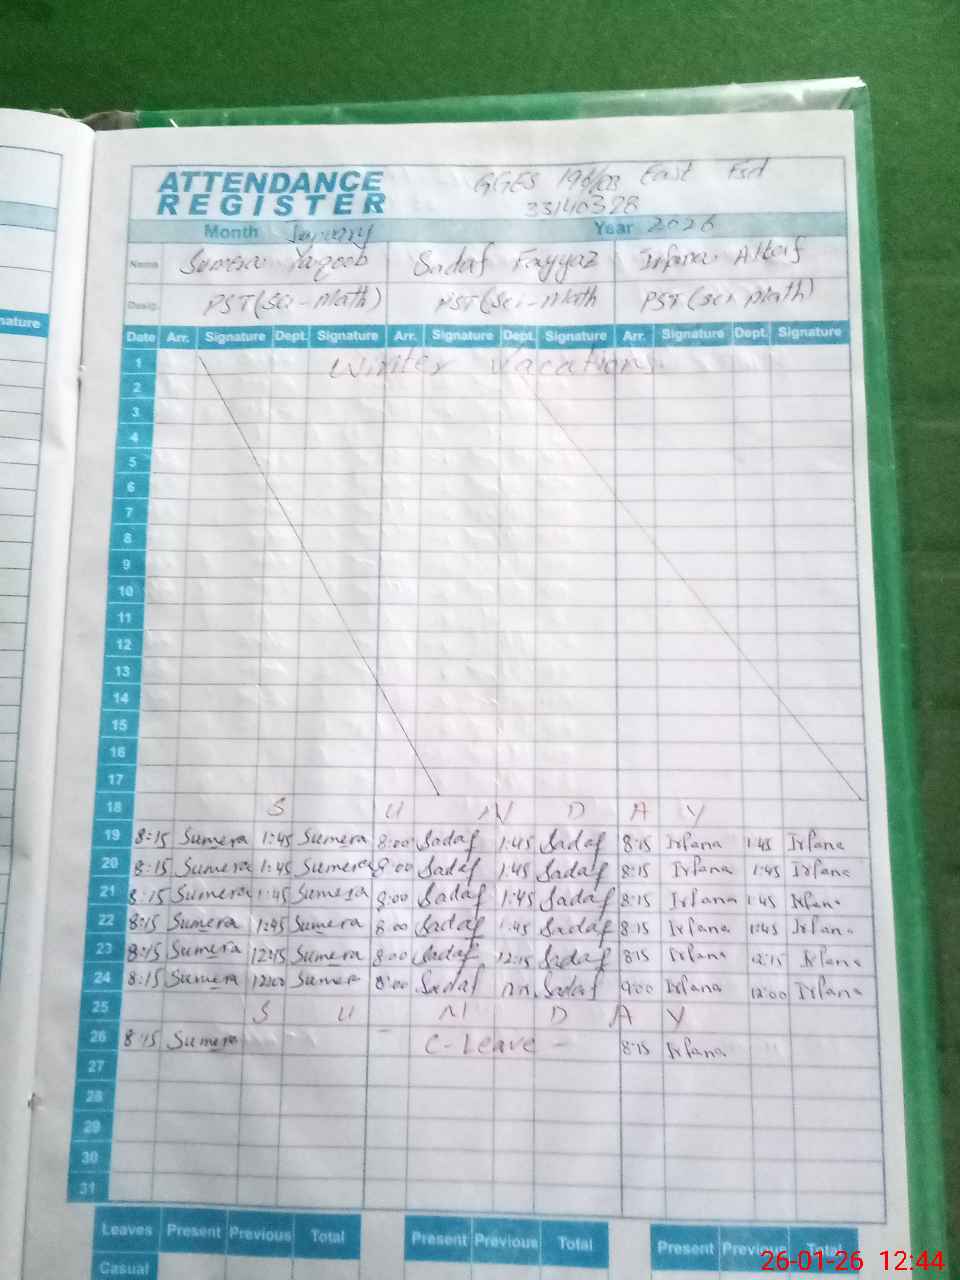 ATTENDANCE GGES 198/RB East Fsd
REGISTER 33140328
Month January Year 2026
Name Sumera Yaqoob Sadaf Fayyaz Irfana Altaf
Desig. PST(Sci-Math) PST(Sci-Math PST(Sci Math)
nature
Date Arr. Signature Dept. Signature Arr. Signature Dept. Signature Arr. Signature Dept. Signature
1 Winter Vacation.
2
3
4
5
6
7
8
9
10
11
12
13
14
15
16
17
18 S U N D A Y
19 8:15 Sumera 1:45 Sumera 8:00 Sadaf 1:45 Sadaf 8:15 Irfana 1:45 Irfana
20 8:15 Sumera 1:45 Sumera 8:00 Sadaf 1:45 Sadaf 8:15 Irfana 1:45 Irfana
21 8:15 Sumera 1:45 Sumera 8:00 Sadaf 1:45 Sadaf 8:15 Irfana 1:45 Irfana
22 8:15 Sumera 1:45 Sumera 8:00 Sadaf 1:45 Sadaf 8:15 Irfana 1:45 Irfana
23 8:15 Sumera 12:15 Sumera 8:00 Sadaf 12:15 Sadaf 8:15 Irfana 12:15 Irfana
24 8:15 Sumera 12:00 Sumera 8:00 Sadaf Sadaf 9:00 Irfana 12:00 Irfana
25 S U N D A Y
26 8:15 Sumera - C-Leave - 8:15 Irfana
27
28
29
30
31
Leaves Present Previous Total Present Previous Total Present Previous Total
Casual
26-01-26 12:44